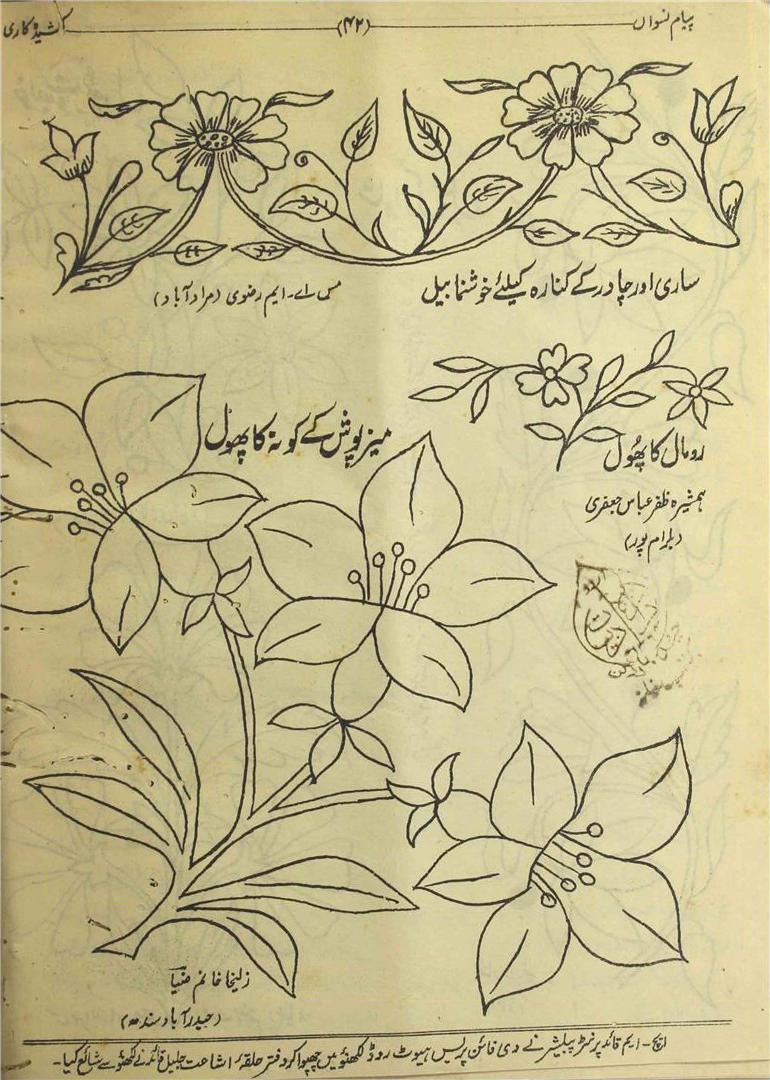 پیام نسواں (۴۲) کشیدہ کاری
ساری اور چادر کے کنارہ کیلئے خوشنما بیل
مس اے۔ ایم رضوی (مرادآباد)
رومال کا پھُول
ہمشیرہ ظفر عباس جعفری
(بلرام پور)
میز پوش کے کونہ کا پھول
زلیخا خانم ضیا
(حیدرآباد سندھ)
ایچ۔ ایم قائد پرنٹر پبلیشر نے دی فائن پریس ہیوٹ روڈ لکھنؤ میں چھپوا کر دفتر حلقۂ اشاعت جلیل قائد نے لکھنؤ سے شائع کیا۔